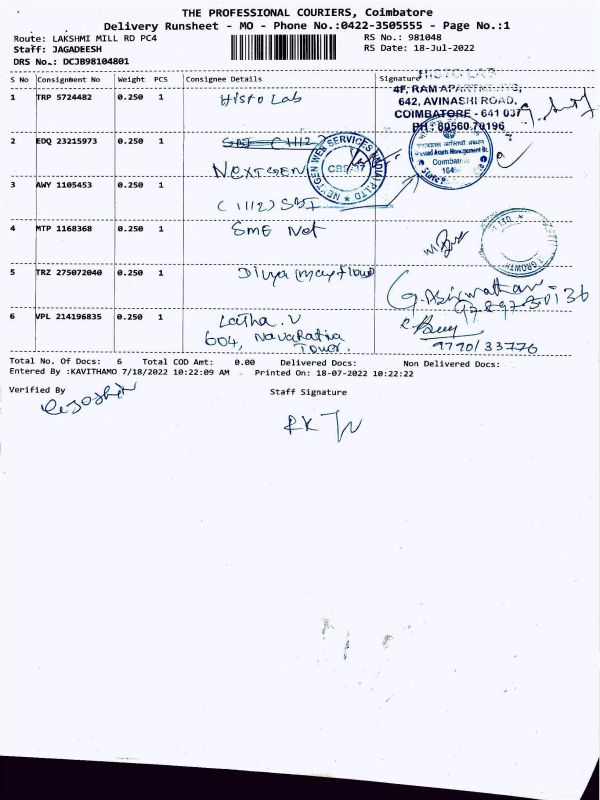 THE PROFESSIONAL COURIERS, Coimbatore
Delivery Runsheet - MO - Phone No.:0422-3505555 - Page No.:1
Route: LAKSHMI MILL RD PC4 RS No.: 981048
Staff: JAGADEESH RS Date: 18-Jul-2022
DRS No.: DCJB98104801
S No Consignment No Weight PCS Consignee Details Signature
HISTO LAB
4F, RAM APARTMENTS,
1 TRP 5724482 0.250 1 Histo Lab 642, AVINASHI ROAD,
COIMBATORE - 641 037
PH: 80560 70196
2 EDQ 23215973 0.250 1 SBI (1112)
NEXTGEN
NEXTGEN WEB SERVICES (INDIA) P LTD
CBE-37
Coimbatore
3 AWY 1105453 0.250 1 (1112) SBI
4 MTP 1168368 0.250 1 SME Net
5 TRZ 275072040 0.250 1 Divya mayflower
6 VPL 214196835 0.250 1 Latha. V
604, NavaRatna
Tower.
Total No. Of Docs: 6 Total COD Amt: 0.00 Delivered Docs: Non Delivered Docs:
Entered By :KAVITHAMO 7/18/2022 10:22:09 AM . Printed On: 18-07-2022 10:22:22
Verified By Staff Signature